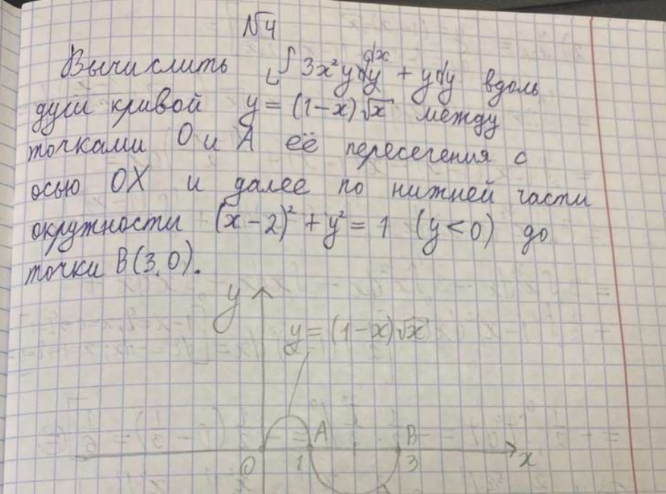 №4
Вычислить ∫_L 3x²y dx + y dy вдоль
дуги кривой y = (1-x)√x между
точками O и A её пересечения с
осью OX и далее по нижней части
окружности (x-2)² + y² = 1 (y<0) до
точки B(3,0).
y
y = (1-x)√x
A B
O 1 3 x